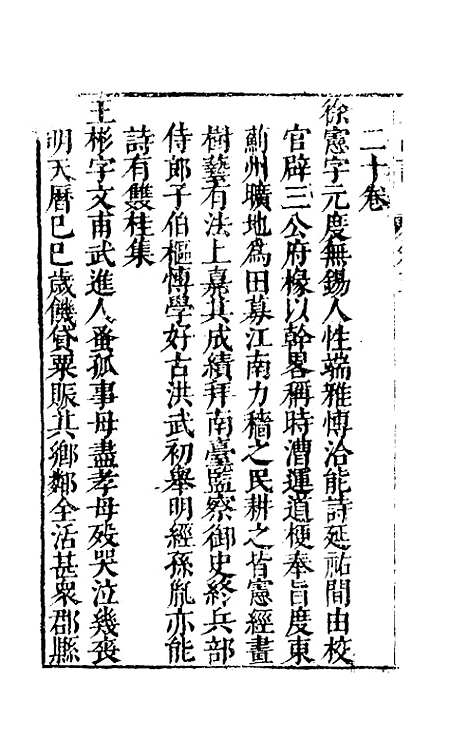 二十卷
徐憲字元度無錫人性端雅博洽能詩延祐間由校
官辟三公府椽以幹畧稱時漕運道梗奉旨度東
薊州曠地為田募江南力穡之民耕之皆憲經畫
樹藝有法上嘉其成績拜南臺監察御史終兵部
侍郎子伯樞慱學好古洪武初舉明經孫胤亦能
詩有雙桂集
王彬字文甫武進人蚤孤事母盡孝母歿哭泣幾喪
明天曆巳巳歲饑貸粟賑其鄉鄰全活甚衆郡縣